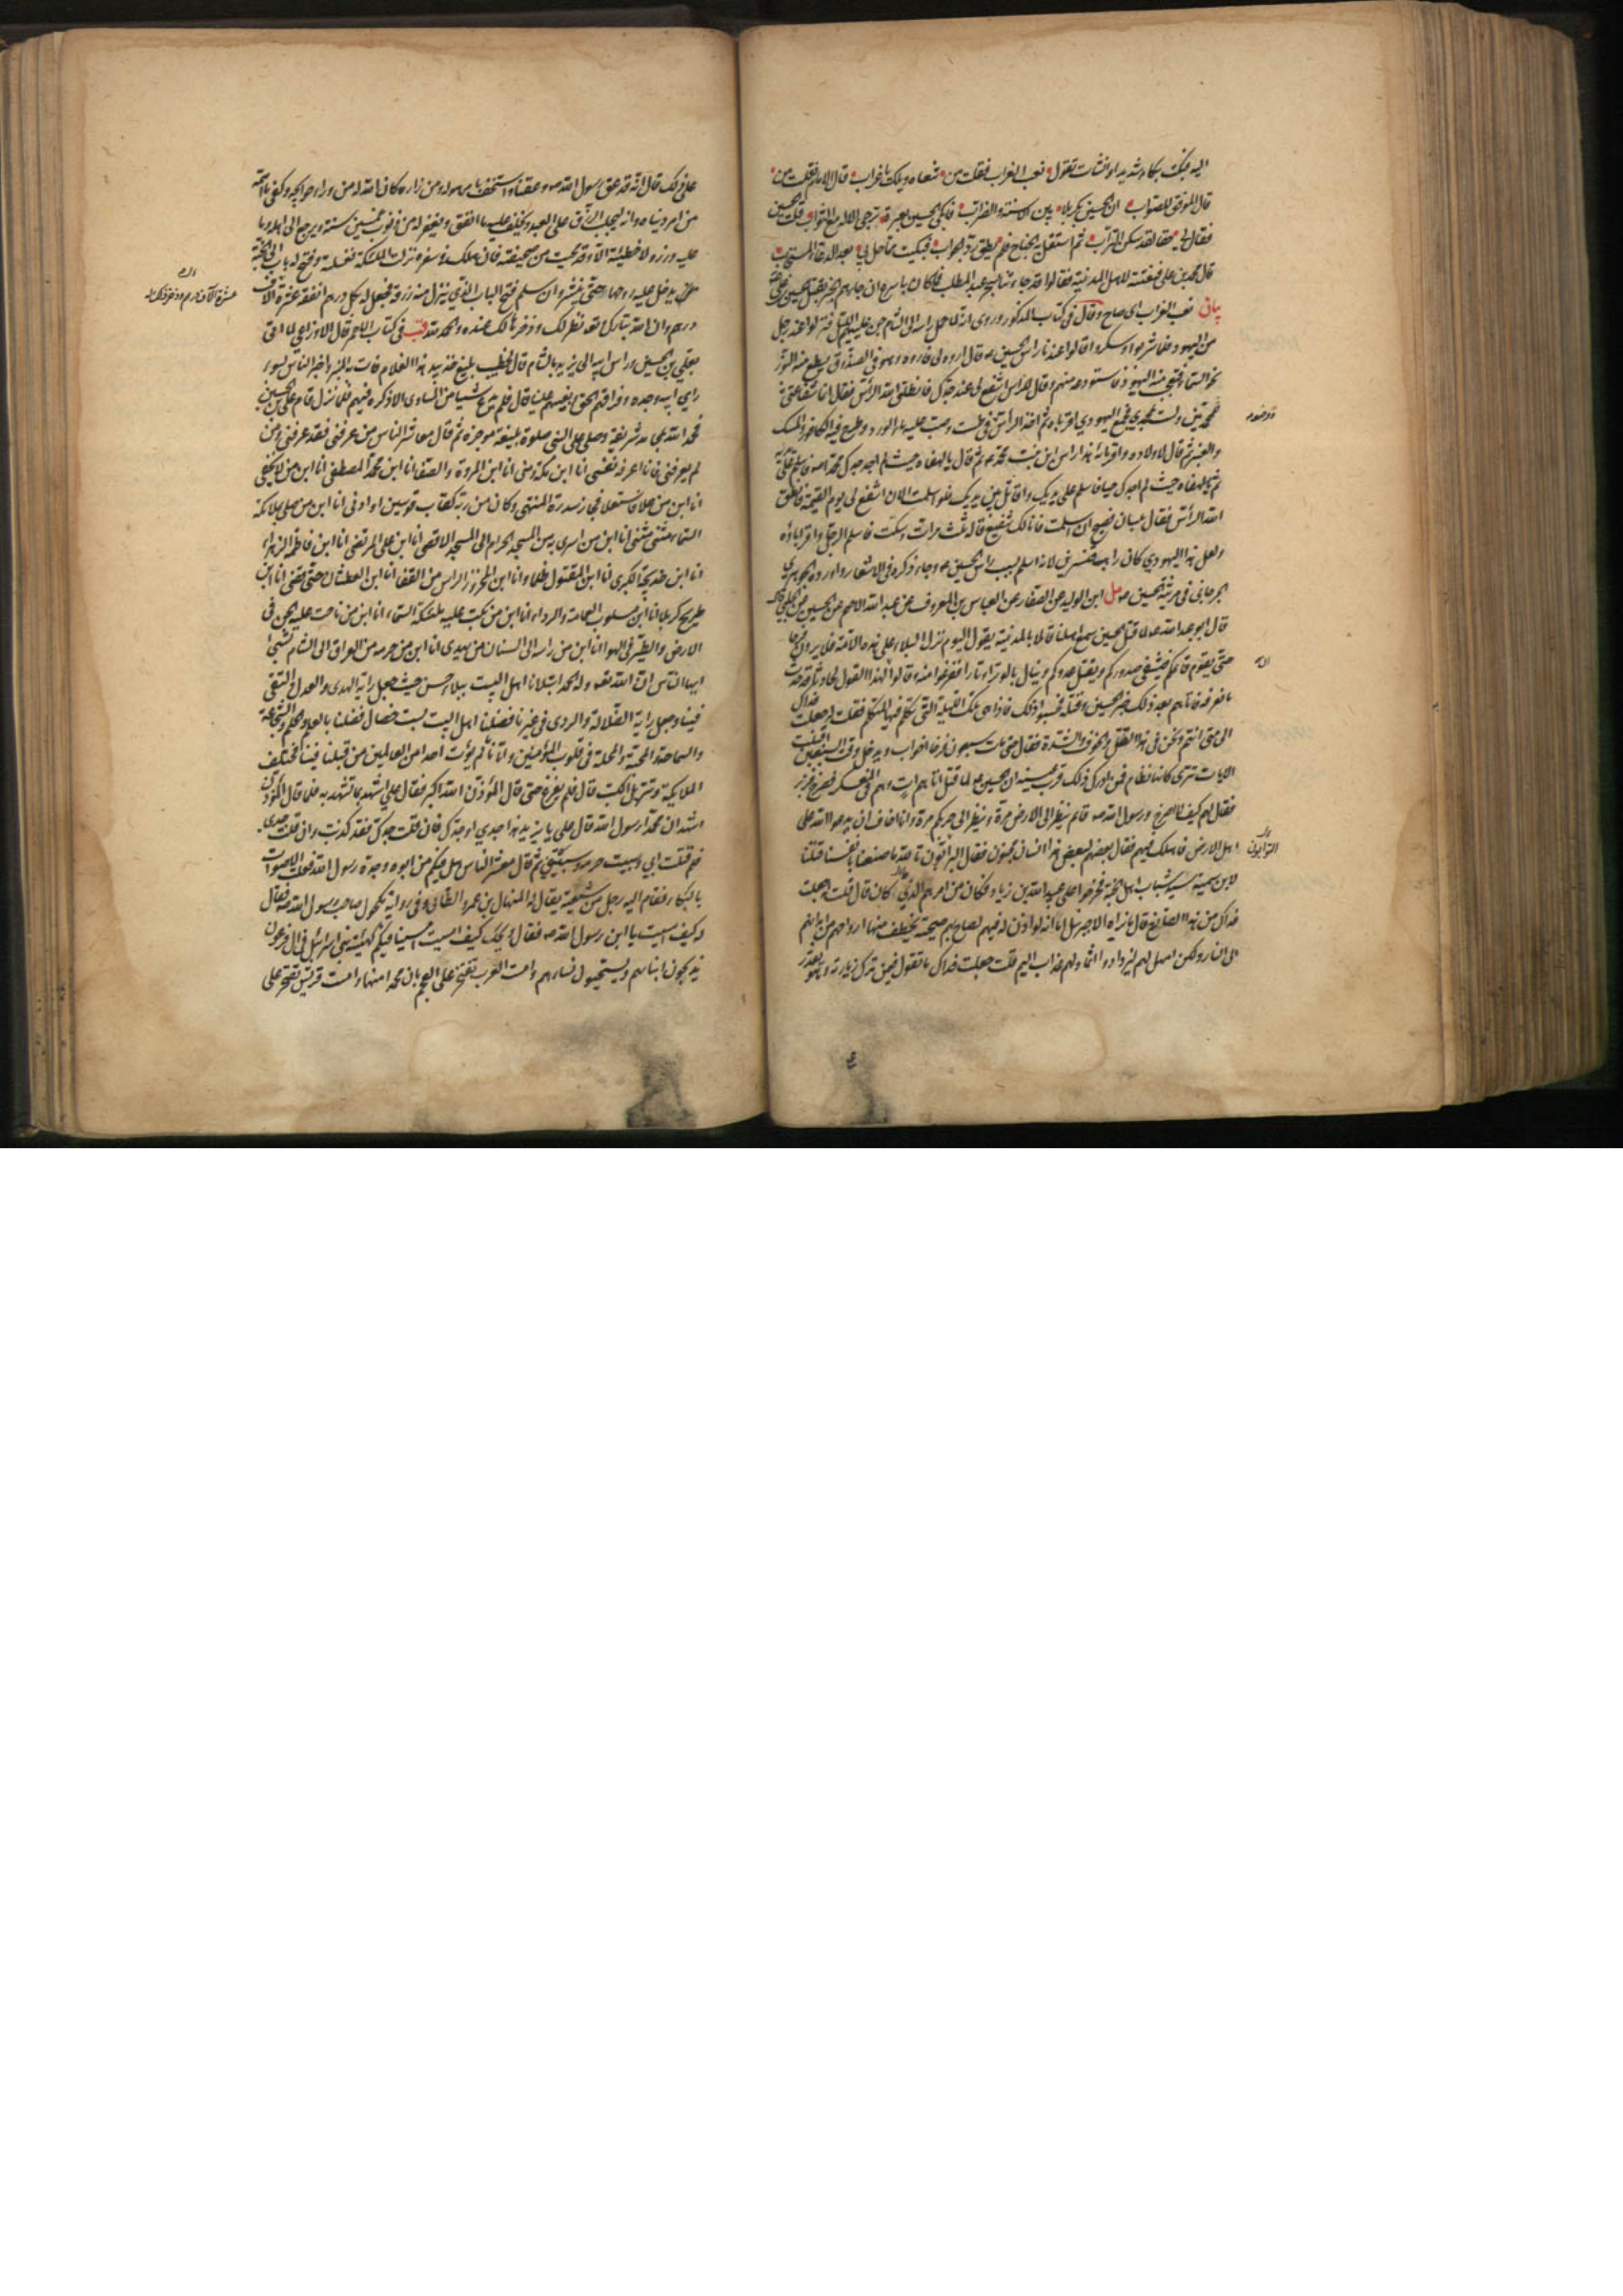 اليه فبكت بكاء شديدا وانشات تقول نعب الغراب فقلت من تنعاه ويلك يا غراب قال الامام فقلت من
قال الموفق للصواب ان الحسين بكربلاء بين الاسنة والضراب فابكي الحسين بعبرة ترجي الاله مع الثواب قلت الحسين
فقال لي حقا لقد سكن التراب ثم استقل به الجناح فلم يطق رد الجواب فبكيت مما حل بي بعد الدعاء المستجاب
قال محمد بن علي فنعته لاهل المدينة فقالوا قد جاءتنا بسحر عبد المطلب فما كان باسرع ان جاءهم الخبر بقتل الحسين بن علي
بيان نعب الغراب اي صاح وقال في كتاب المذكور وروي انه لما حمل راسه الى الشام جن عليهم الليل فنزلوا عند رجل
من اليهود فلما شربوا وسكروا قالوا عندنا راس الحسين ع قال اروه لي فاروه وهو في الصندوق يسطع منه النور
نحو السماء فتعجب منه اليهودي فاستودعه منهم وقال للراس اشفع لي عند جدك فانطق الله الراس فقال انما شفاعتي
للمحمديين ولست بمحمدي فجمع اليهودي اقرباءه ثم اخذ الراس في طست وصب عليه ماء الورد وطرح فيه الكافور والمسك
والعنبر ثم قال لاولاده واقربائه هذا راس ابن بنت محمد ص ثم قال يا لهفاه حيث لم اجد جدك محمد ص فاسلم على يديه
ثم يا لهفاه حيث لم اجدك حيا فاسلم على يديك واقاتل بين يديك فلو اسلمت الان اتشفع لي يوم القيمة فانطق
الله الراس فقال بلسان فصيح ان اسلمت فانا لك شفيع قاله ثلث مرات وسكت فاسلم الرجل واقرباؤه
ولعل هذا اليهودي كان راهب قنسرين لانه اسلم بسبب راس الحسين ع وجاء ذكره في الاشعار واورده الجوهري
الجرجاني في مرثية الحسين ع مل ابن الوليد عن الصفار عن العباس بن المعروف عن عبد الله الاصم عن الحسين عن الحلبي قال
قال ابو عبد الله ع لما قتل الحسين سمع اهلنا قائلا بالمدينة يقول اليوم نزل البلاء على هذه الامة فلا يرون فرحا
حتى يقوم قائمكم فيشفي صدوركم ويقتل عدوكم وينال بالوتر اوتارا ففزعوا منه وقالوا ان لهذا القول لحادثا قد حدث
ما نعرفه فاتاهم بعد ذلك خبر الحسين وقتله فحسبوا ذلك فاذا هي تلك الليلة التي تكلم فيها المتكلم فقلت له جعلت فداك
الى متى انتم ونحن في هذا القتل والخوف والشدة فقال حتى مات سبعون فرخا اخواب ويدخل وقت السبعين
الايات تترى كانها نظام فمن ادرك ذلك قرت عينه ان الحسين ع لما قتل اتاهم ات وهم في العسكر فصرخ فزبر
فقال لهم كيف لا اصرخ ورسول الله ص قائم ينظر الى الارض مرة وينظر الى حربكم مرة وانا اخاف ان يدعو الله على
اهل الارض فاهلك فيهم فقال بعضهم لبعض هذا انسان مجنون فقال التوابون تالله ما صنعنا بانفسنا قتلنا
لابن سمية سيد شباب اهل الجنة فخرجوا على عبيد الله بن زياد فكان من امرهم الذي كان قال قلت جعلت
فداك من هذا الصارخ قال ما نراه الا جبرئيل اما انه لو اذن له فيهم لصاح بهم صيحة يخطف منها ارواحهم من ابدانهم
الى النار ولكن امهل لهم ليزدادوا اثما ولهم عذاب اليم قلت جعلت فداك ما تقول فيمن ترك زيارته وهو يقدر
التوابون
على ذلك قال انه قد عق رسول الله ص وعقنا واستخف بامر هو له ومن زاره كان الله له من وراء حوائجه وكفي ما اهمه
من امر دنياه وانه ليجلب الرزق على العبد ويخلف عليه ما انفق ويغفر له من ذنوب خمسين سنة ويرجع الى اهله وما
عليه وزر ولا خطيئة الا وقد محيت من صحيفته فان هلك في سفره نزلت الملئكة فغسلته وفتح له باب الى الجنة
يدخل عليه روحها حتى ينشر وان سلم فتح الباب الذي ينزل منه رزقه فجعل له بكل درهم انفقه عشرة الاف
درهم وان الله تبارك وتعالى نظر لك وذخرها لك عنده والحمد لله قب في كتاب الاحمر قال الاوزاعي لما اتي
بعلي بن الحسين وراس ابيه الى يزيد بالشام قال لخطيب بليغ خذ بيد هذا الغلام فات به المنبر واخبر الناس بسوء
راي ابيه وجده وفراقهم الحق وبغيهم علينا قال فلم يدع شيئا من المساوي الا ذكره فيهم فلما نزل قام علي بن الحسين
فحمد الله بمحامد شريفة وصلى على النبي صلوة بليغة موجزة ثم قال معاشر الناس من عرفني فقد عرفني ومن
لم يعرفني فانا اعرفه نفسي انا ابن مكة ومنى انا ابن المروة والصفا انا ابن محمد المصطفى انا ابن من لا يخفى
انا ابن من علا فاستعلا فجاز سدرة المنتهى وكان من ربه كقاب قوسين او ادنى انا ابن من صلى بملائكة
السماء مثنى مثنى انا ابن من اسري به من المسجد الحرام الى المسجد الاقصى انا ابن علي المرتضى انا ابن فاطمة الزهراء
انا ابن خديجة الكبرى انا ابن المقتول ظلما انا ابن المحزوز الراس من القفا انا ابن العطشان حتى قضى انا ابن
طريح كربلا انا ابن مسلوب العمامة والرداء انا ابن من بكت عليه ملئكة السماء انا ابن من ناحت عليه الجن في
الارض والطير في الهواء انا ابن من راسه الى السنان يهدى انا ابن من حرمه من العراق الى الشام تسبى
ايها الناس ان الله تعالى وله الحمد ابتلانا اهل البيت ببلاء حسن حيث جعل راية الهدى والعدل والتقى
فينا وجعل راية الضلالة والردى في غيرنا فضلنا اهل البيت بست خصال فضلنا بالعلم والحلم والشجاعة
والسماحة والمحبة والمحلة في قلوب المؤمنين واتانا ما لم يؤت احدا من العالمين من قبلنا فينا مختلف
الملائكة وتنزيل الكتب قال فلم يفرغ حتى قال المؤذن الله اكبر فقال علي اشهد بما تشهد به فلما قال المؤذن
اشهد ان محمدا رسول الله قال علي يا يزيد هذا جدي او جدك فان قلت جدك فقد كذبت وان قلت جدي
فلم قتلت ابي وسبيت حرمه وسبيتني ثم قال معاشر الناس هل فيكم من ابوه وجده رسول الله فعلت الاصوات
بالبكاء فقام اليه رجل من شيعته يقال له المنهال بن عمرو الطائي وفي رواية مكحول صاحب رسول الله ص فقال
له كيف امسيت يا ابن رسول الله ص فقال ويحك كيف امسيت امسينا فيكم كهيئة بني اسرائيل في ال فرعون
يذبحون ابناءهم ويستحيون نساءهم وامست العرب تفتخر على العجم بان محمدا منها وامست قريش تفتخر على